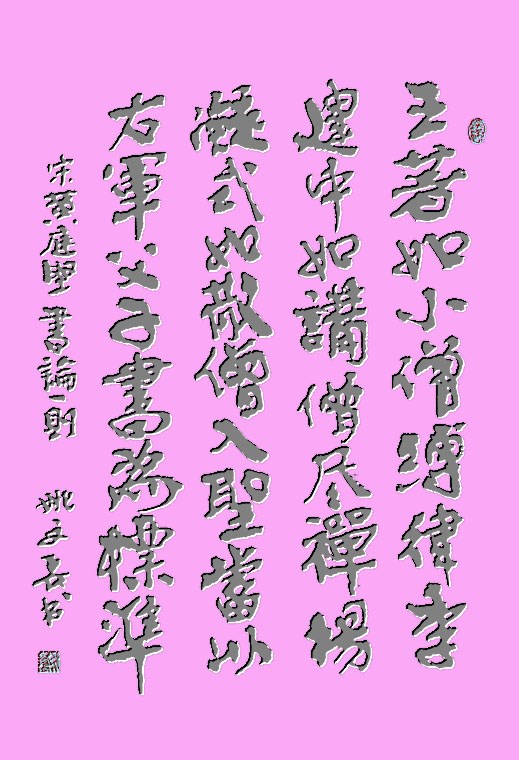 王著如小僧縛律李
建中如講僧參禪楊
凝式如散僧入聖當以
右軍父子書為標準
宋黃庭堅書論一則 姚文長书